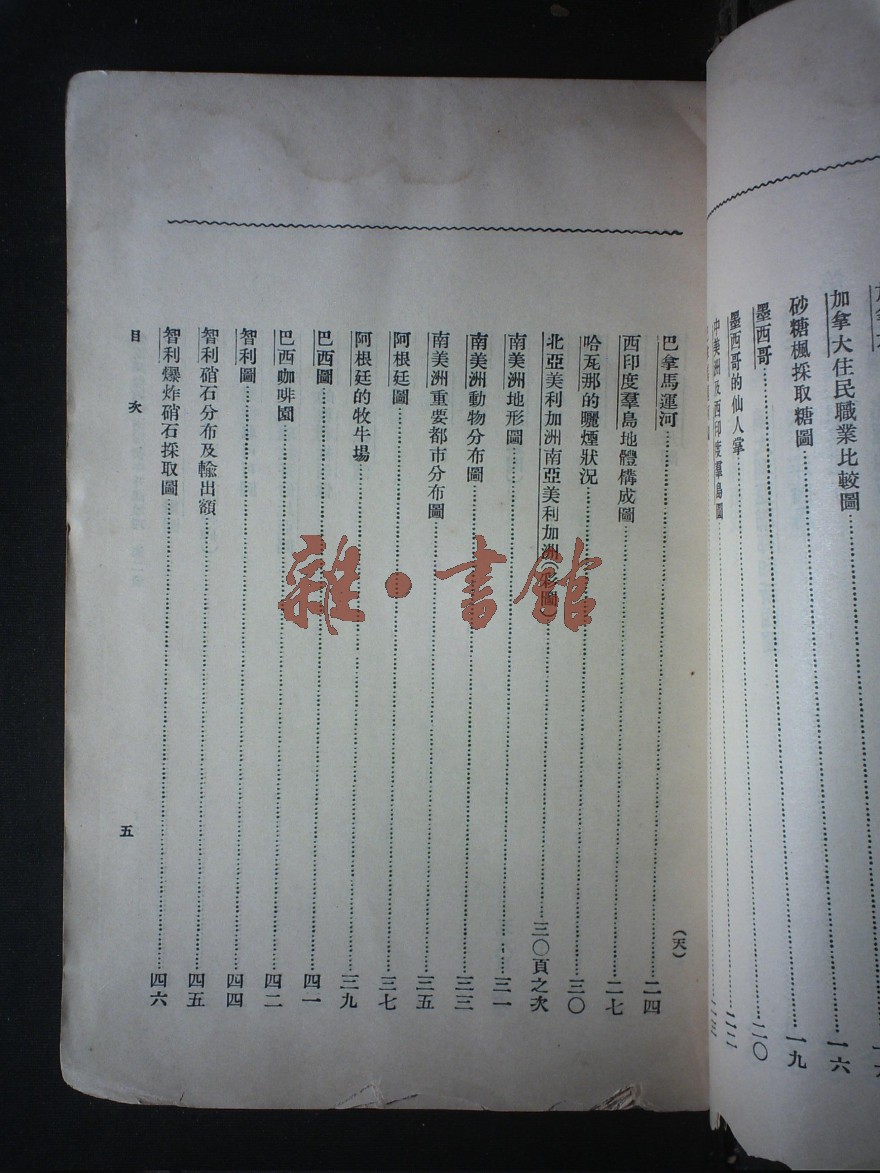 加拿大住民職業比較圖……一六
砂糖楓採取糖圖……一九
墨西哥……二〇
墨西哥的仙人掌……二二
中美洲及西印度羣島圖
巴拿馬運河……(天)二四
西印度羣島地體構成圖……二七
哈瓦那的曬煙狀況……三〇
北亞美利加洲南亞美利加洲(彩圖)……三〇頁之次
南美洲地形圖……三一
南美洲動物分布圖……三三
南美洲重要都市分布圖……三五
阿根廷圖……三七
阿根廷的牧牛場……三九
巴西圖……四一
巴西咖啡園……四二
智利圖……四四
智利硝石分布及輸出額……四五
智利爆炸硝石採取圖……四六
目次 五
雜·書館